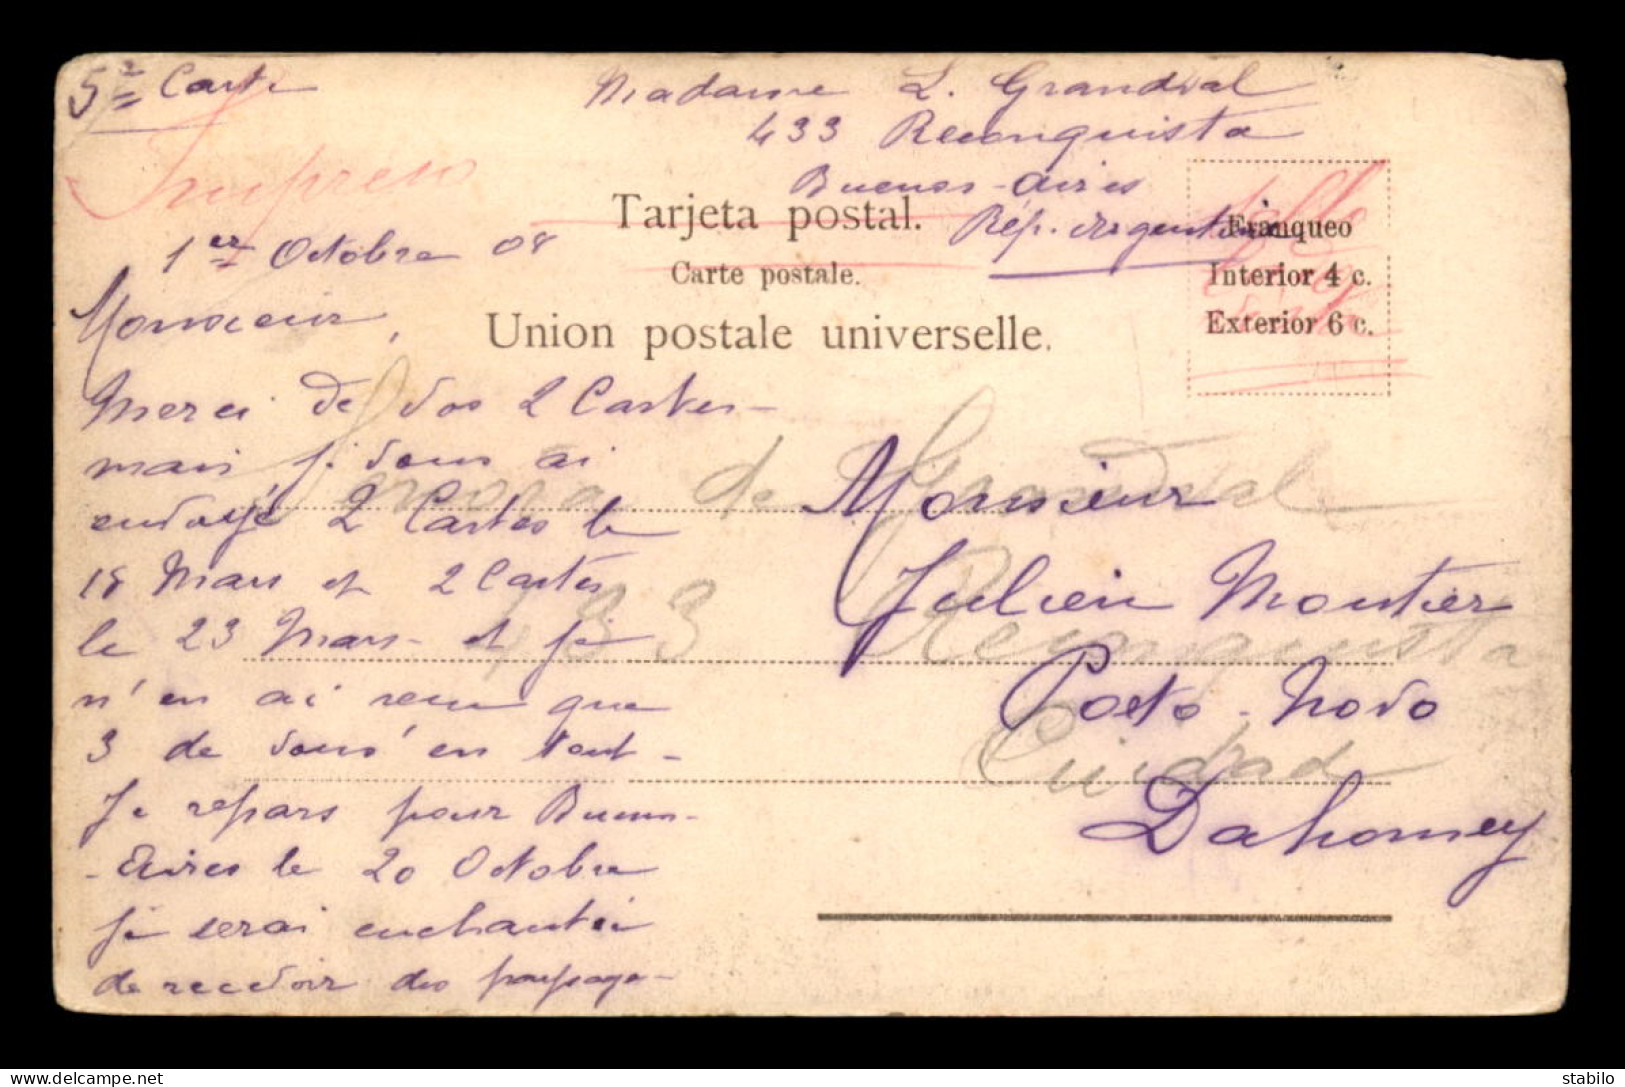 5e Carte
Madame L. Grandval
433 Reconquista
Buenos-Aires
Rép. Argentine
Impreso
Tarjeta postal.
Carte postale.
Union postale universelle.
Franqueo
Interior 4 c.
Exterior 6 c.
1er Octobre 08
Monsieur,
Merci de vos 2 Cartes-
mais je vous ai
envoyé 2 Cartes le
18 Mars et 2 Cartes
le 23 Mars- et je
n'en ai reçu que
3 de vous en tout-
Je repars pour Buenos-
-Aires le 20 Octobre
je serai enchantée
de recevoir des paysage-
Señora de Grandval
433 Reconquista
Ciudad
Monsieur
Julien Moutier
Porto-Novo
Dahomey
stabilo